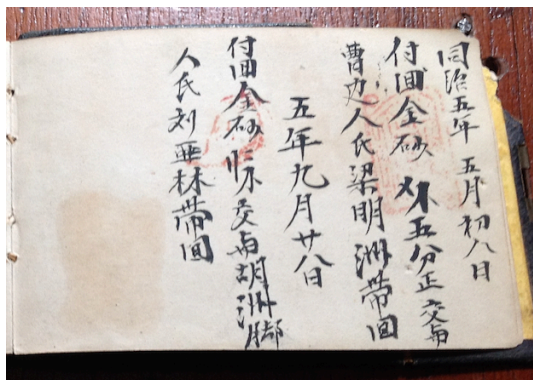 同治五年 五月初八日
付囬金砂 五分正 交与
曹边人氏梁明洲帶囬
五年九月廿八日
付囬金砂 交与胡洲脚
人氏刘亜林帶囬